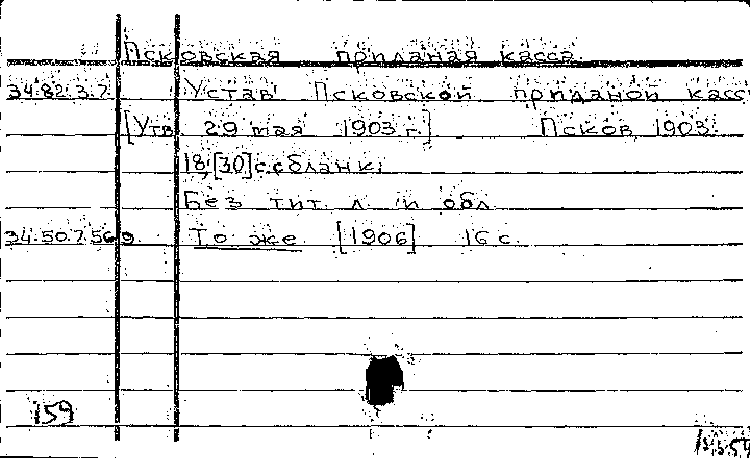 Псковская приданая касса
34.82.3.7 Устав Псковской приданой касс
[Утв. 29 мая 1903 г.] Псков, 1903.
18, [30] с. с бланк.
Без тит. л. и обл.
34.50.7.569. То же [1906] 16 с.
159